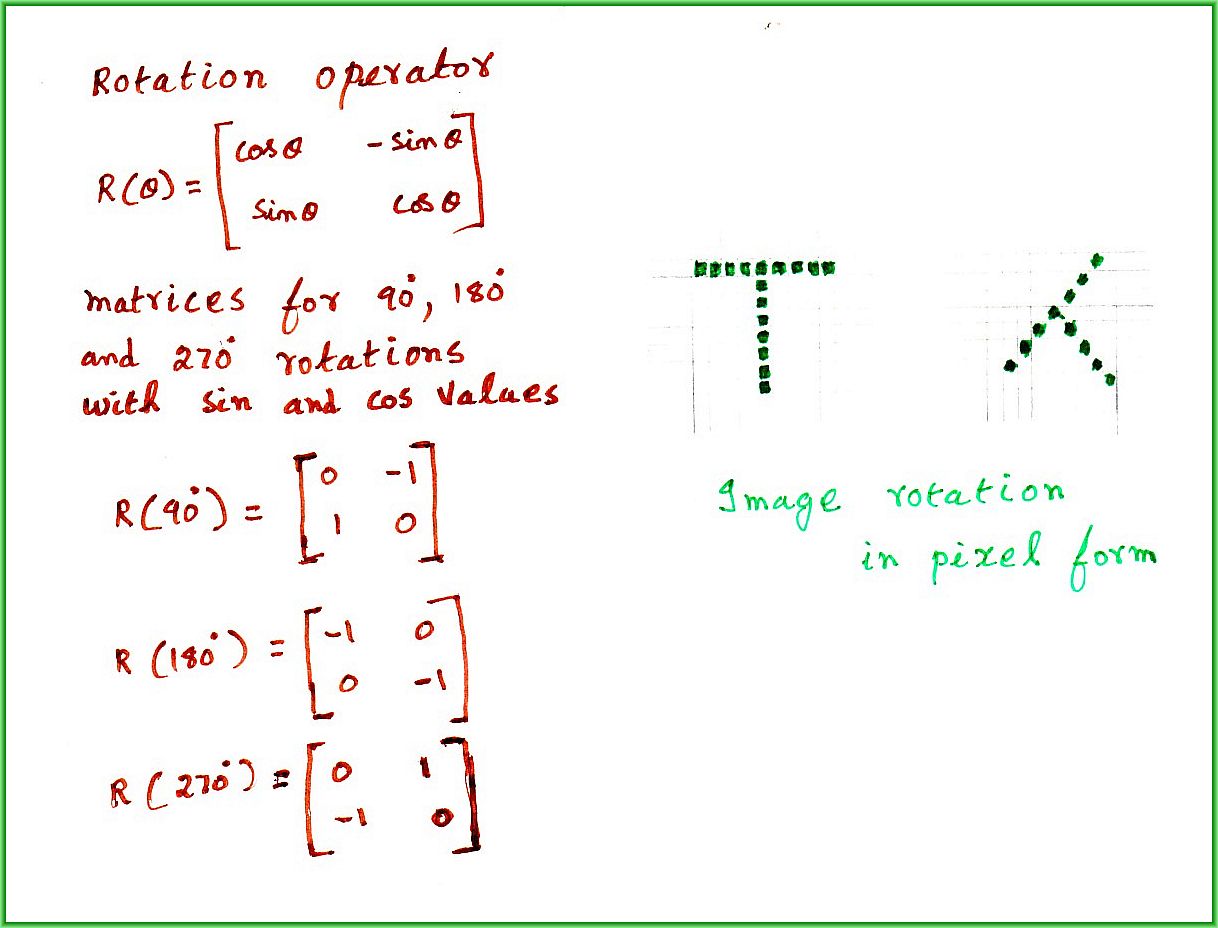 Rotation operator
R(θ) = [cosθ -sinθ
sinθ cosθ]
matrices for 90°, 180°
and 270° rotations
with sin and cos values
R(90°) = [0 -1
1 0]
R(180°) = [-1 0
0 -1]
R(270°) = [0 1
-1 0]
Image rotation
in pixel form